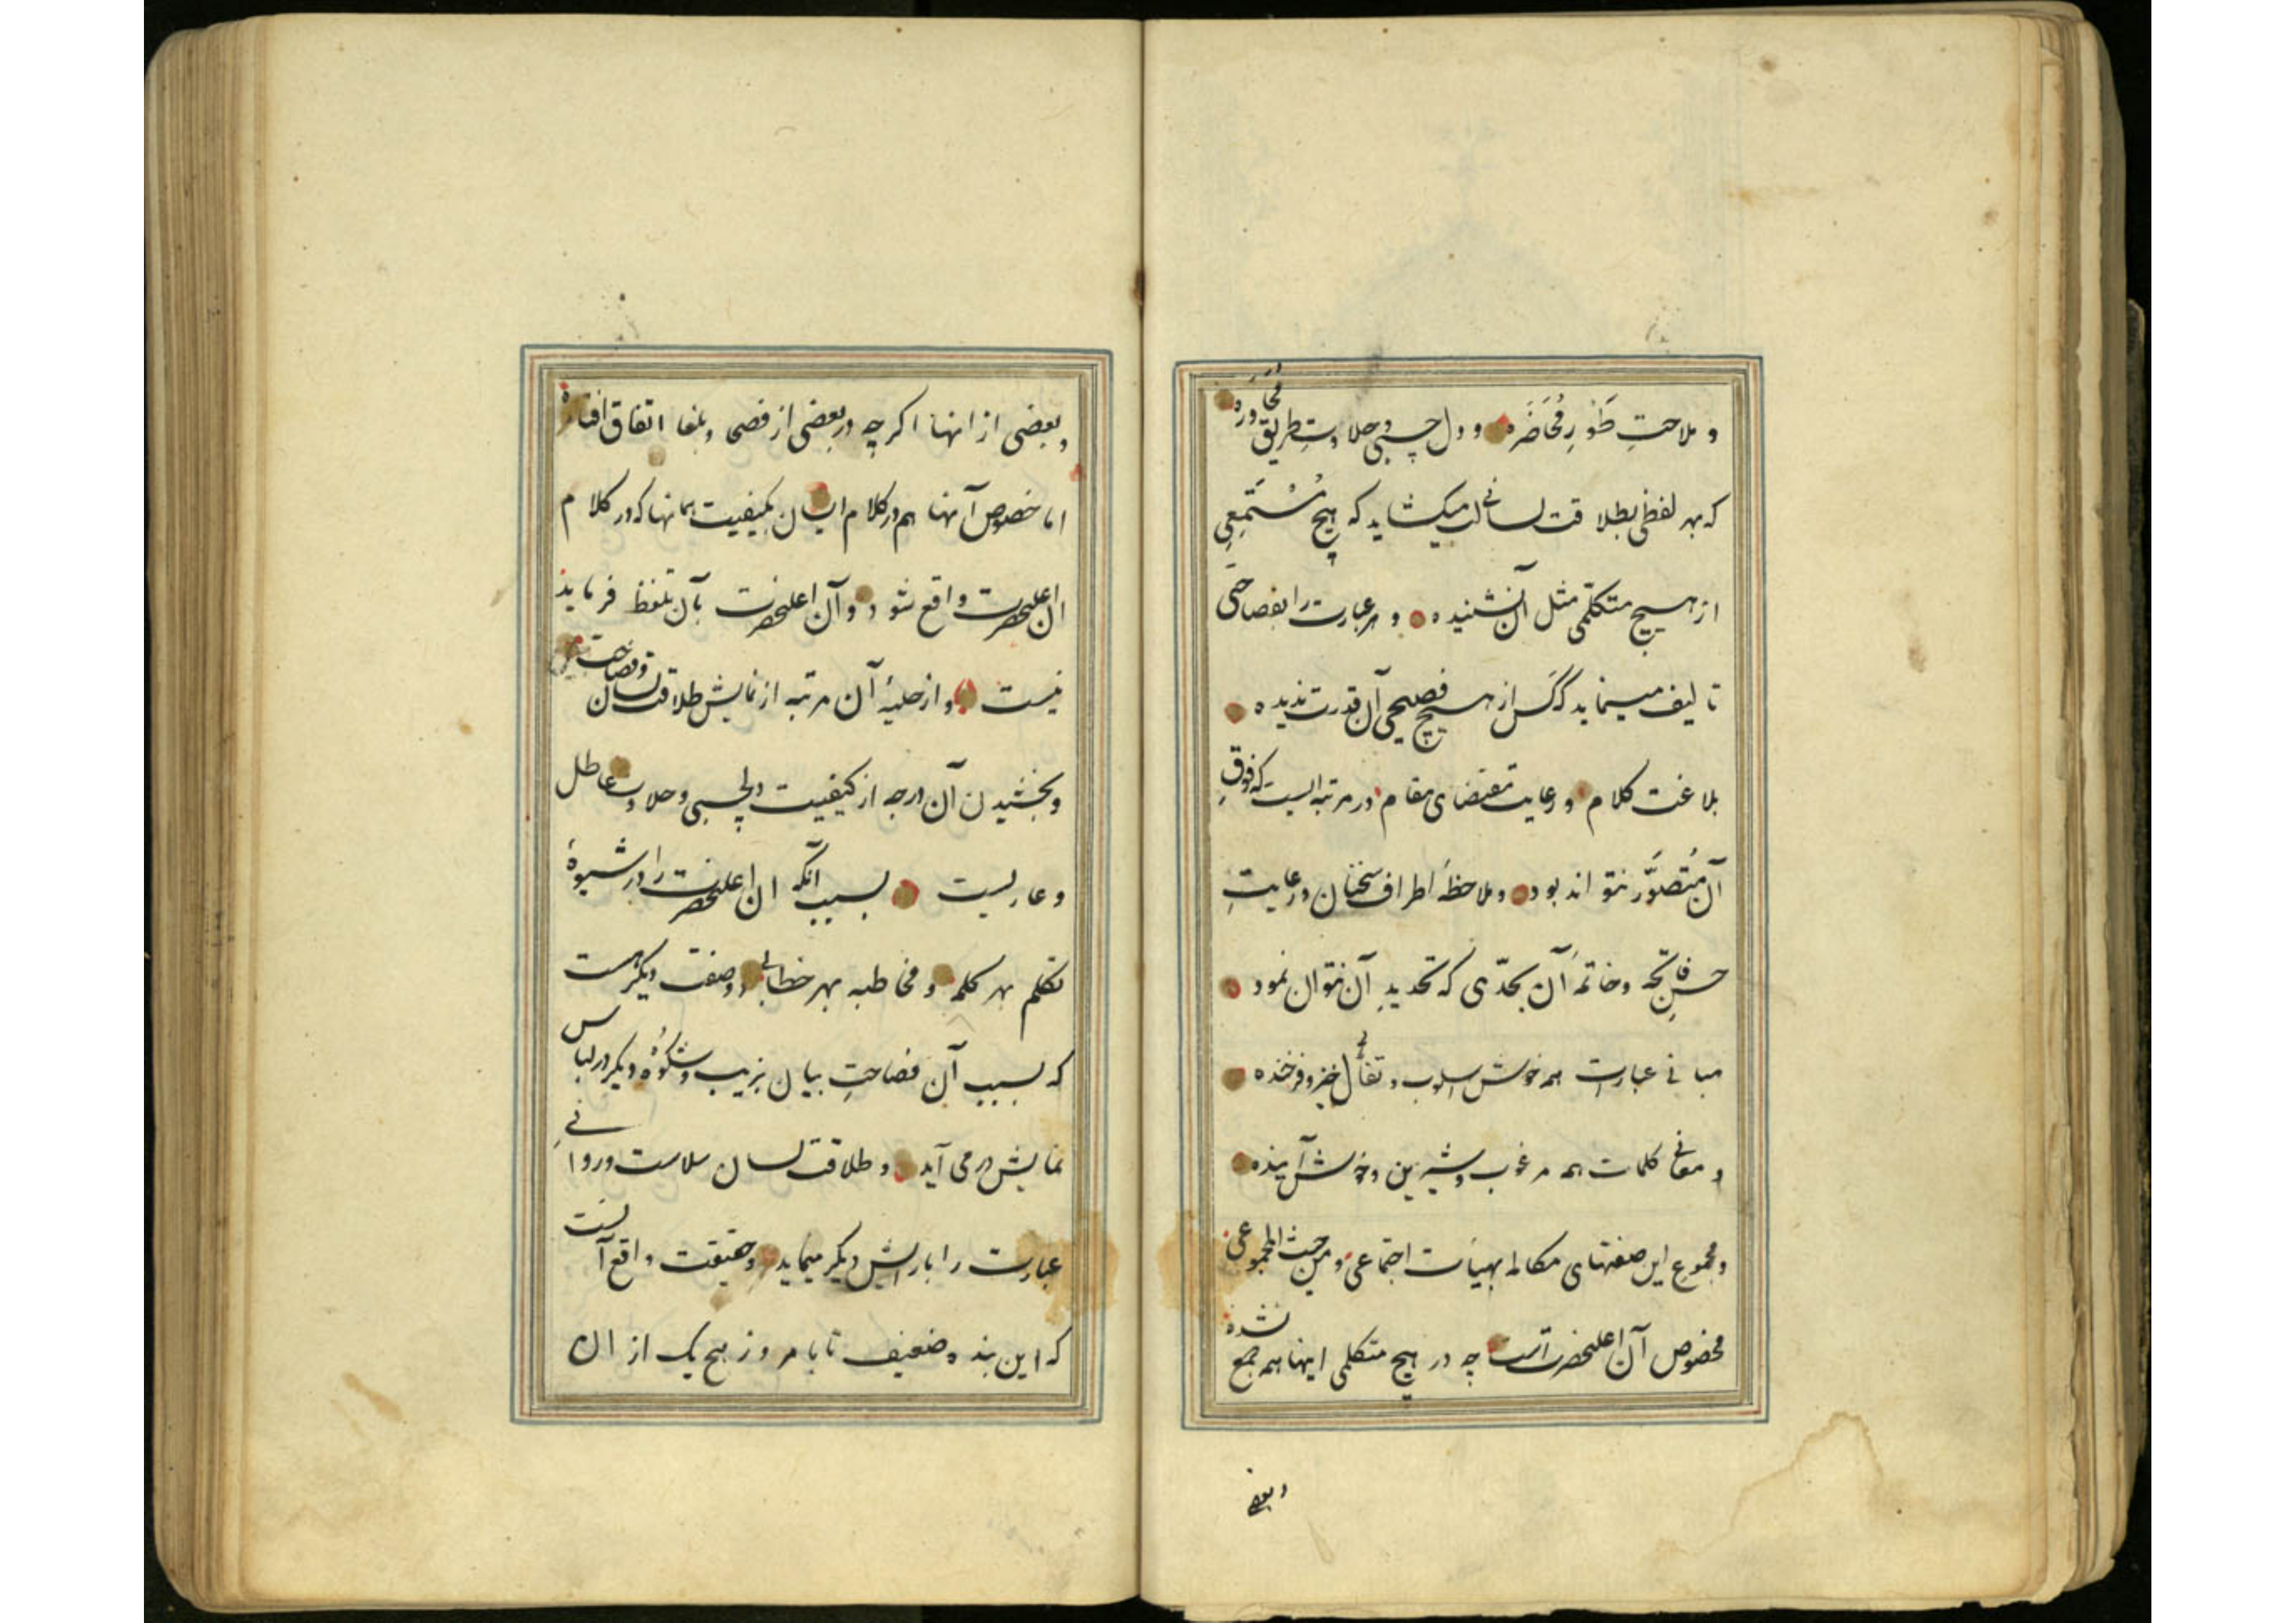 و ملاحتِ طَوْرِ مُحَاضَره و دل چسبی و حلاوتِ طریق مُحَاوَره
که بهر لفظی بطلاقت لسانی لب میکشاید که هیچ مُسْتَمِعِی
از هیچ متکلّمی مثل آن نشنیده و هر عبارت را بفصاحتی
تالیف مینماید که کس از هیچ فصیحی آن قدرت ندیده
بلاغت کلام و رعایت مقتضای مقام در مرتبه ایست که فوقِ
آن مُتَصوَّر نتواند بود و ملاحظهٔ اطراف سخنان و رعایتِ
حسنِ فاتحه و خاتمهٔ آن بحدّی که تحدیدِ آن نتوان نمود
مبانی عبارات همه خوش اسلوب و تفأّلِ خیر و فرخنده
و معانی کلمات همه مرغوب و شیرین و خوش آینده
و مجموع این صفتهای مکالمه بهیأت اجتماعی و من حیث المجموعی
مخصوص آن اعلیحضرت است چه در هیچ متکلمی اینها همه جمع نشده
و بعضی
و بعضی از انها اکر چه در بعضی از فصحا و بلغا اتفاق افتاده
اما خصوص آنها هم در کلام ایشان بکیفیت همانها که در کلام
ان اعلیحضرت واقع شود و آن اعلیحضرت بآن تلفظ فرماید
نیست و از حلیهٔ آن مرتبه از نمایش طلاقت لسان و فصاحت
و بخشیدن آن درجه از کیفیت دلچسبی و حلاوت عاطل
و عاریست بسبب آنکه ان اعلیحضرت را در شیوهٔ
تکلم بهر کلمه و مخاطبه بهر خطابی دو صفت دیکر هست
که بسبب آن فصاحتِ بیان بزیب و شکُوْه دیکر در لباس
نمایش در می آید و طلاقت لسان سلاست و روانی
عبارت را بارایش دیکر مینماید و حقیقت واقع آنست
که این بنده ضعیف تا بامروز هیچ یک از ان